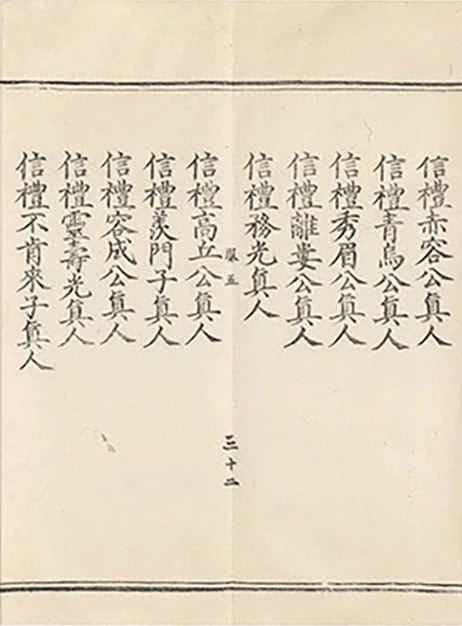 信禮赤容公真人
信禮青鳥公真人
信禮秀眉公真人
信禮離婁公真人
信禮務光真人
服五
三十二
信禮高丘公真人
信禮羨門子真人
信禮容成公真人
信禮靈壽光真人
信禮不肯來子真人